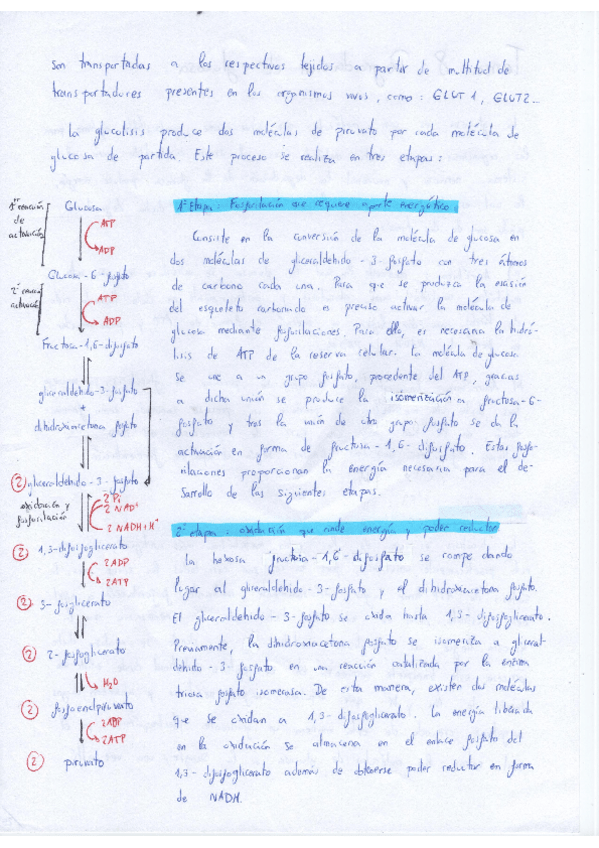 son transportadas a los respectivos tejidos a partir de multitud de
transportadores presentes en los organismos vivos, como: GLUT1, GLUT2...
La glucolisis produce dos moléculas de piruvato por cada molécula de
glucosa de partida. Este proceso se realiza en tres etapas:
1ª reacción
de
activación
Glucosa
ATP
ADP
Glucosa-6-fosfato
2ª reacción
activación
ATP
ADP
Fructosa-1,6-difosfato
gliceraldehido-3-fosfato
+
dihidroxiacetona fosfato
2 gliceraldehido-3-fosfato
oxidación y
fosforilación
2 Pi
2 NAD+
2 NADH+H+
2 1,3-difosfoglicerato
2 ADP
2 ATP
2 3-fosfoglicerato
2 2-fosfoglicerato
H2O
2 fosfoenolpiruvato
2 ADP
2 ATP
2 piruvato
1ª Etapa: Fosforilación que requiere aporte energético.
Consiste en la conversión de la molécula de glucosa en
dos moléculas de gliceraldehido-3-fosfato con tres átomos
de carbono cada una. Para que se produzca la escisión
del esqueleto carbonado es preciso activar la molécula de
glucosa mediante fosforilaciones. Para ello, es necesaria la hidró-
lisis de ATP de la reserva celular. La molécula de glucosa
se une a un grupo fosfato, procedente del ATP, gracias
a dicha unión se produce la isomerización a fructosa-6-
fosfato y tras la unión de otro grupo fosfato se da la
activación en forma de fructosa-1,6-difosfato. Estas fosfo-
rilaciones proporcionan la energía necesaria para el de-
sarrollo de las siguientes etapas.
2ª etapa: oxidación que rinde energía y poder reductor
La hexosa fructosa-1,6-difosfato se rompe dando
lugar al gliceraldehido-3-fosfato y el dihidroxiacetona fosfato.
El gliceraldehido-3-fosfato se oxida hasta 1,3-difosfoglicerato.
Previamente, la dihidroxiacetona fosfato se isomeriza a gliceral-
dehido-3-fosfato en una reacción catalizada por la enzima
triosa fosfato isomerasa. De esta manera, existen dos moléculas
que se oxidan a 1,3-difosfoglicerato. La energía liberada
en la oxidación se almacena en el enlace fosfato del
1,3-difosfoglicerato además de obtenerse poder reductor en forma
de NADH.